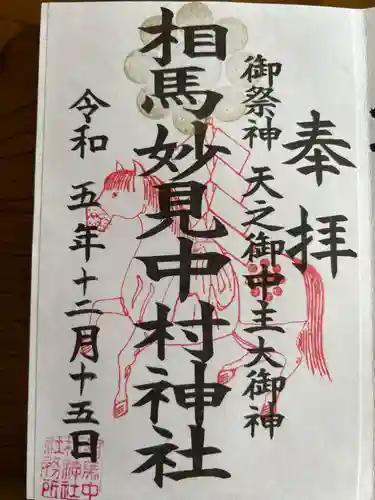 奉拝
御祭神 天之御中主大御神
相馬妙見中村神社
令和 五年十二月十五日
相馬中
村神社
社務所